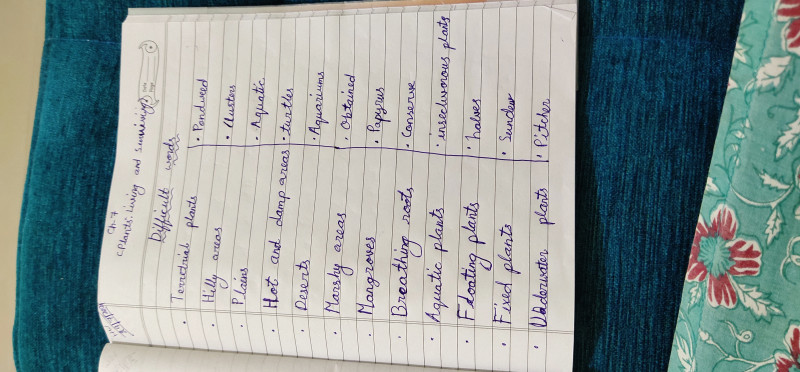 Ch-7
Plants: Living and surviving
Difficult words
• Terredrial plants
• Hilly areas
• Plains
• Hot and damp areas
• Deserts
• Marshy areas
• Mangroves
• Breathing roots
• Aquatic plants
• Floating plants
• Fixed plants
• Underwater plants
• Pondweed
• Clusters
• Aquatic
• turtles
• Aquariums
• Obtained
• Papyrus
• Conserve
• insectivorous plants
• halves
• Sundew
• Pitcher